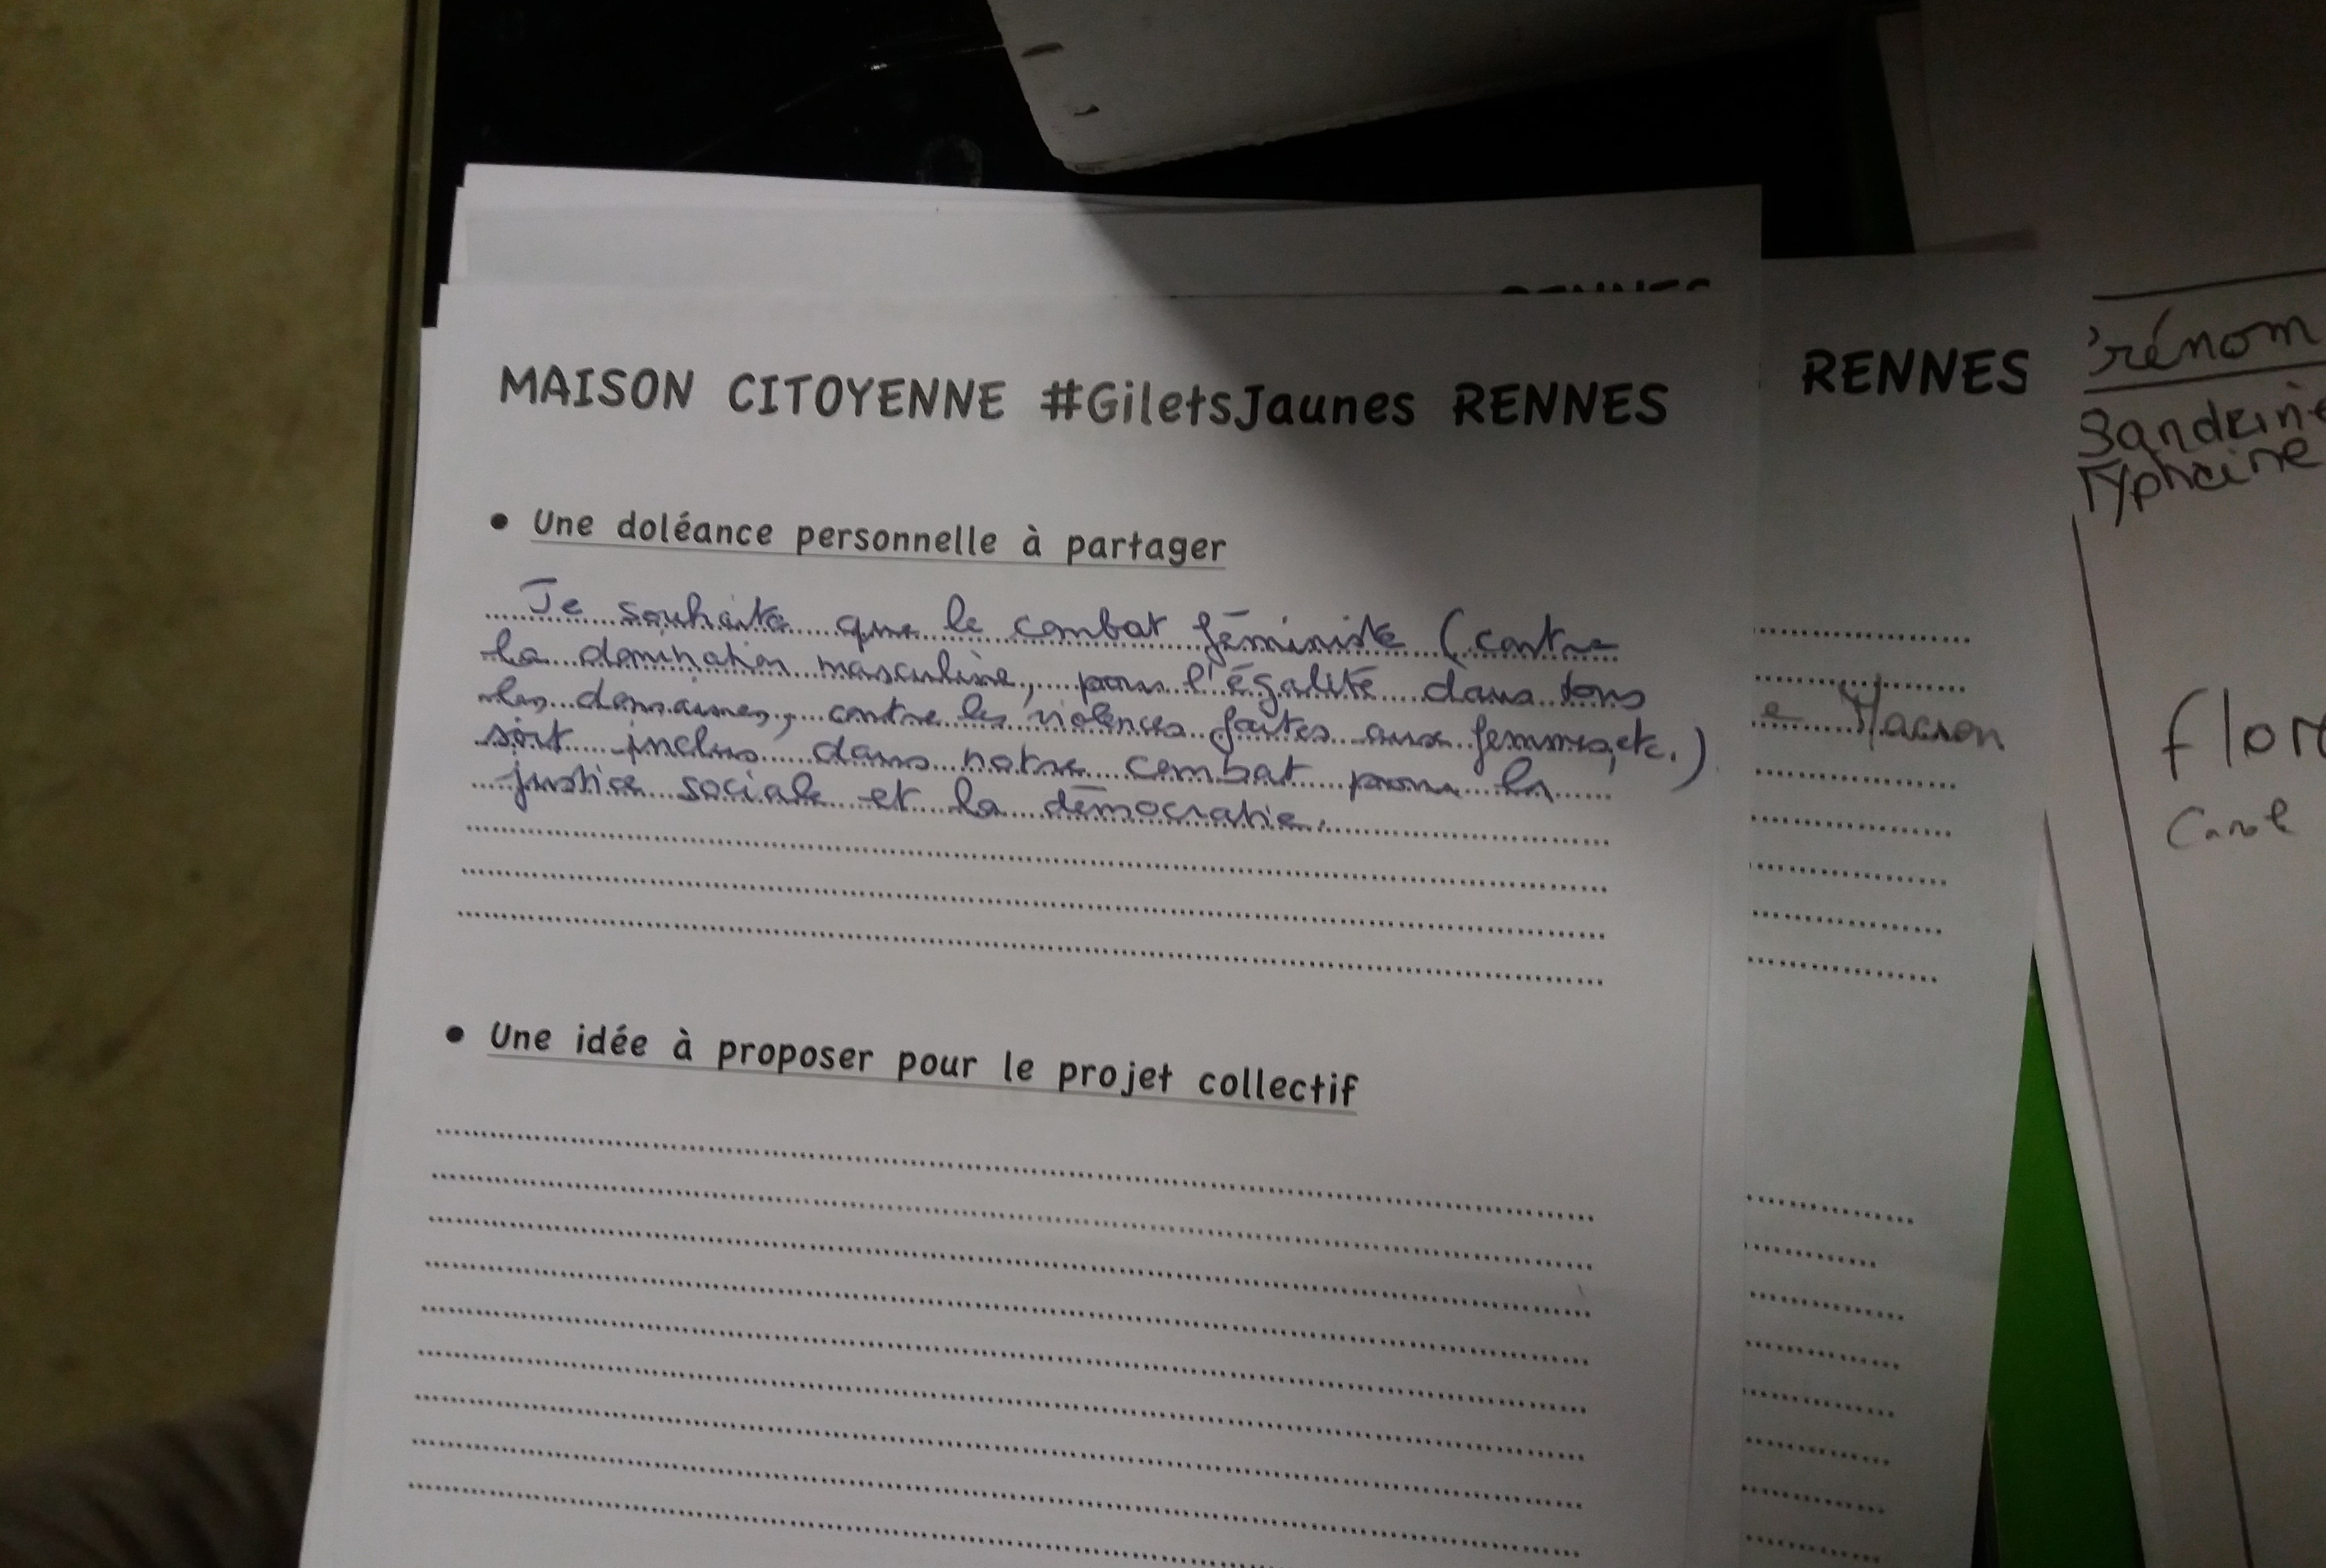 MAISON CITOYENNE #GiletsJaunes RENNES
• Une doléance personnelle à partager
Je souhaite que le combat féministe (contre
la domination masculine, pour l'égalité dans tous
les domaines, contre les violences faites aux femmes, etc.)
soit inclus dans notre combat pour la
justice sociale et la démocratie.
• Une idée à proposer pour le projet collectif
RENNES
RENNES
e Macron
rénom
Sandrine
Typhaine
flor
Carol